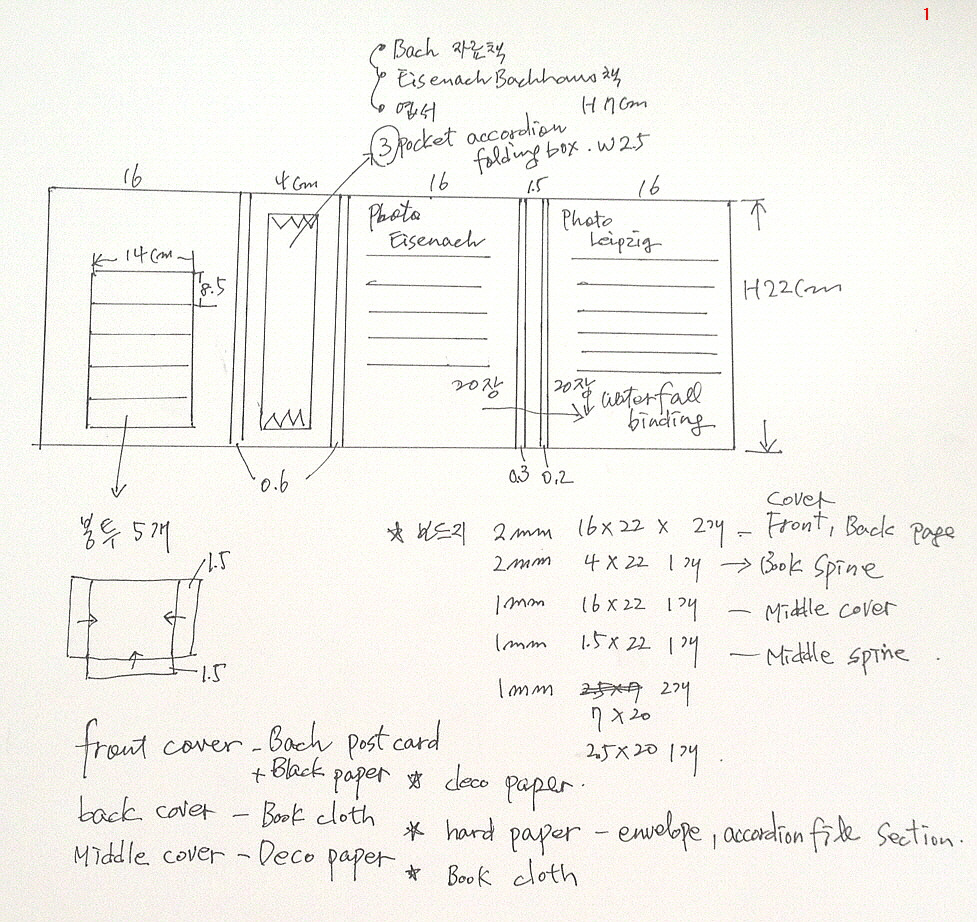 1
Bach 자료책
Eisenach Bachhaus 책
엽서
H 7cm
③ pocket accordion
folding box . W 2.5
16
4cm
16
1.5
16
Photo
Eisenach
Photo
Leipzig
14cm
8.5
H22cm
20장
20장
waterfall
binding
0.6
0.3
0.2
봉투 5개
1.5
1.5
cover
* 보드지 2mm 16×22 × 2개 – Front, Back page
2mm 4×22 1개 → Book Spine
1mm 16×22 1개 – Middle cover
1mm 1.5×22 1개 – Middle spine .
1mm 2.5×7 2개
7×20
2.5×20 1개 .
front cover – Bach post card
+ Black paper
* deco paper .
back cover – Book cloth
* hard paper – envelope, accordion file section.
Middle cover – Deco paper
* Book cloth